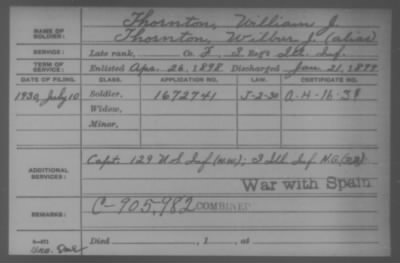 NAME OF SOLDIER: Thornton, William J.
Thornton, Wilbur J. (alias)
SERVICE: Late rank, Co. F, 3 Reg't Ill. Inf.
TERM OF SERVICE: Enlisted Apr. 26, 1898 Discharged Jan. 21, 1899
DATE OF FILING. CLASS. APPLICATION NO. LAW. CERTIFICATE NO.
1930, July 10 Soldier, 1672741 J-2-30 A-4-16-31
Widow,
Minor,
ADDITIONAL SERVICES: Capt. 129 U S Inf (WW); 3 Ill Inf N.G.
War with Spain
REMARKS: C-905,982 COMBINED
Died , 1 , at